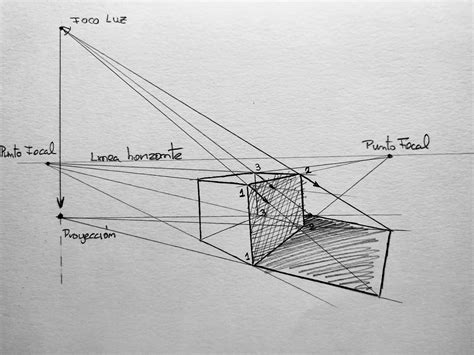 Foco Luz
Punto Focal
Linea horizonte
Punto Focal
3
2
1
3
2
Proyección
1